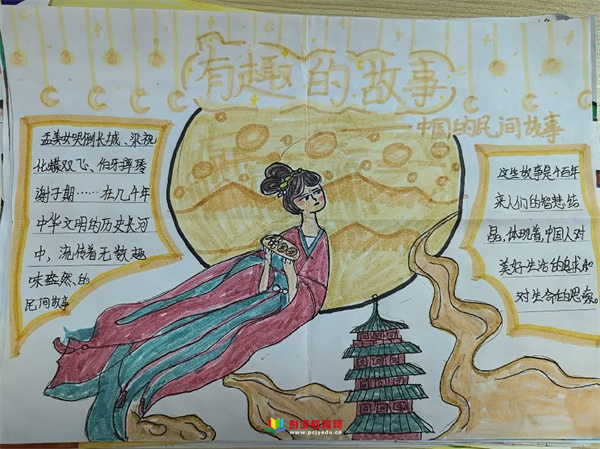 有趣的故事
中国的民间故事
孟美女哭倒长城、梁祝
化蝶双飞、伯牙摔琴
谢子期……在几千年
中华文明的历史长河
中，流传着无数趣
味盎然的
民间故事
这些故事是千百年
来人们的智慧结
晶，体现着中国人对
美好生活的追求和
对生命的思索。
www.pcjyedu.cn